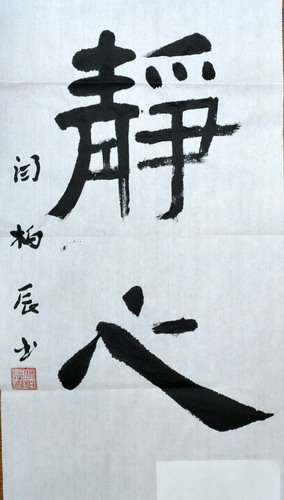 靜心
闫柏辰书